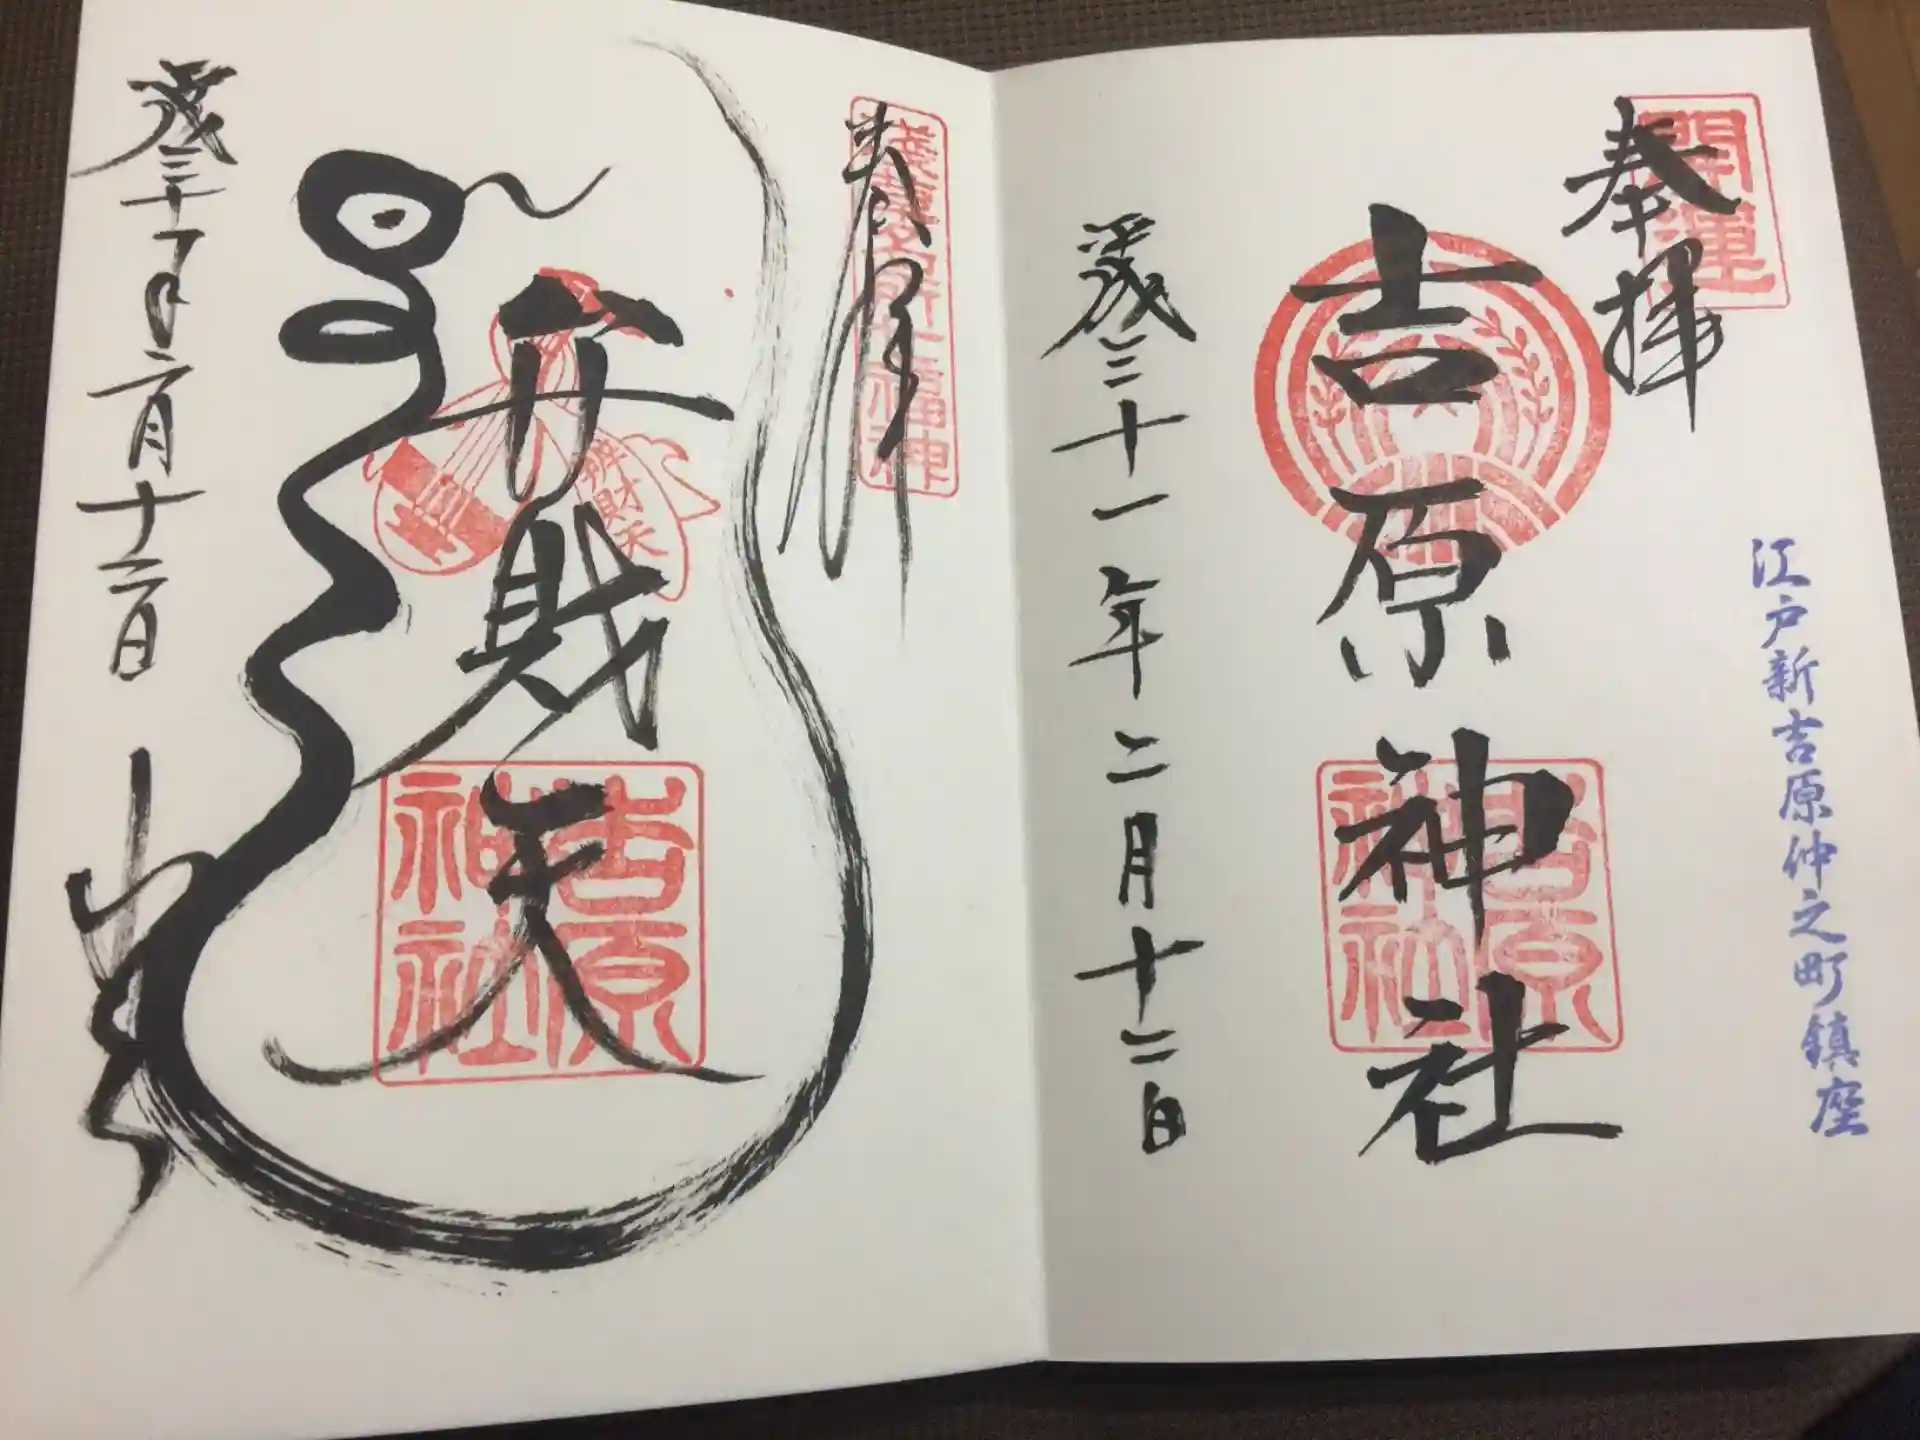 開運
奉拝
江戸新吉原仲之町鎮座
吉原神社
吉原神社
平成三十一年二月十二日
浅草名所七福神
奉拝
弁財天
辨財天
吉原神社
平成三十一年二月十二日